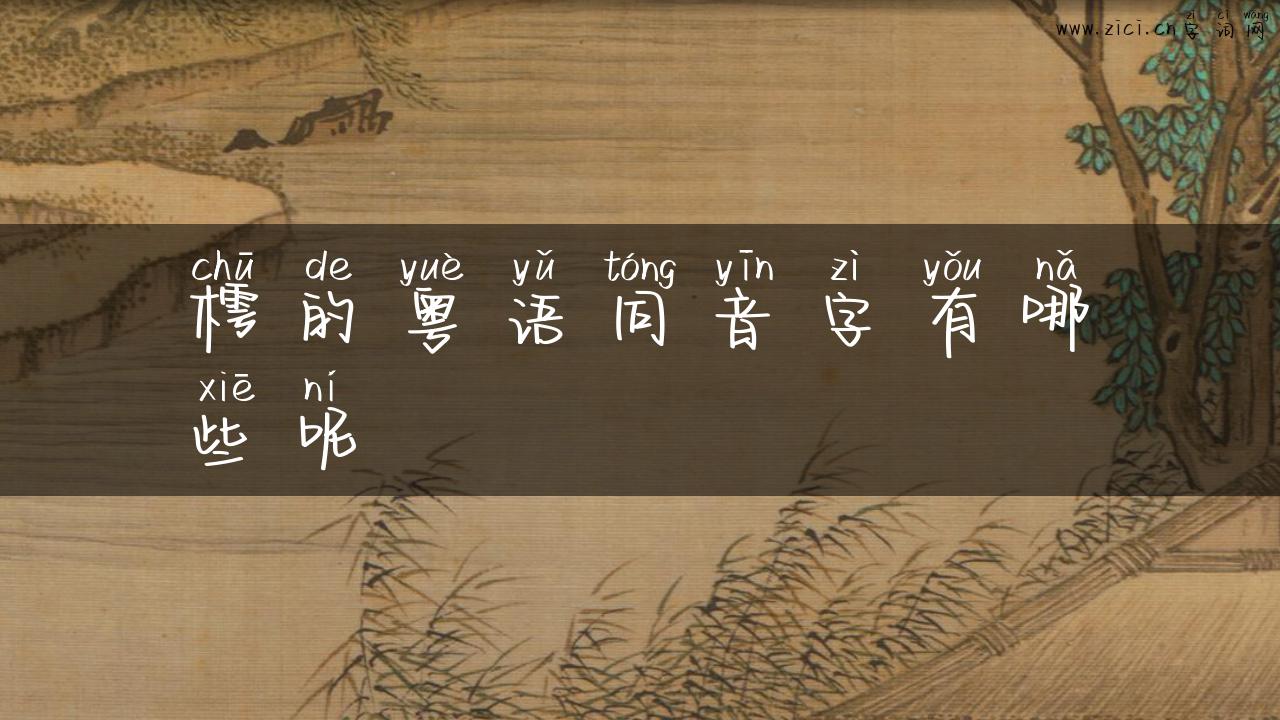 zì cí wǎng
www.zici.cn字词网
chū de yuè yǔ tóng yīn zì yǒu nǎ
樗的粤语同音字有哪
xiē ní
些呢